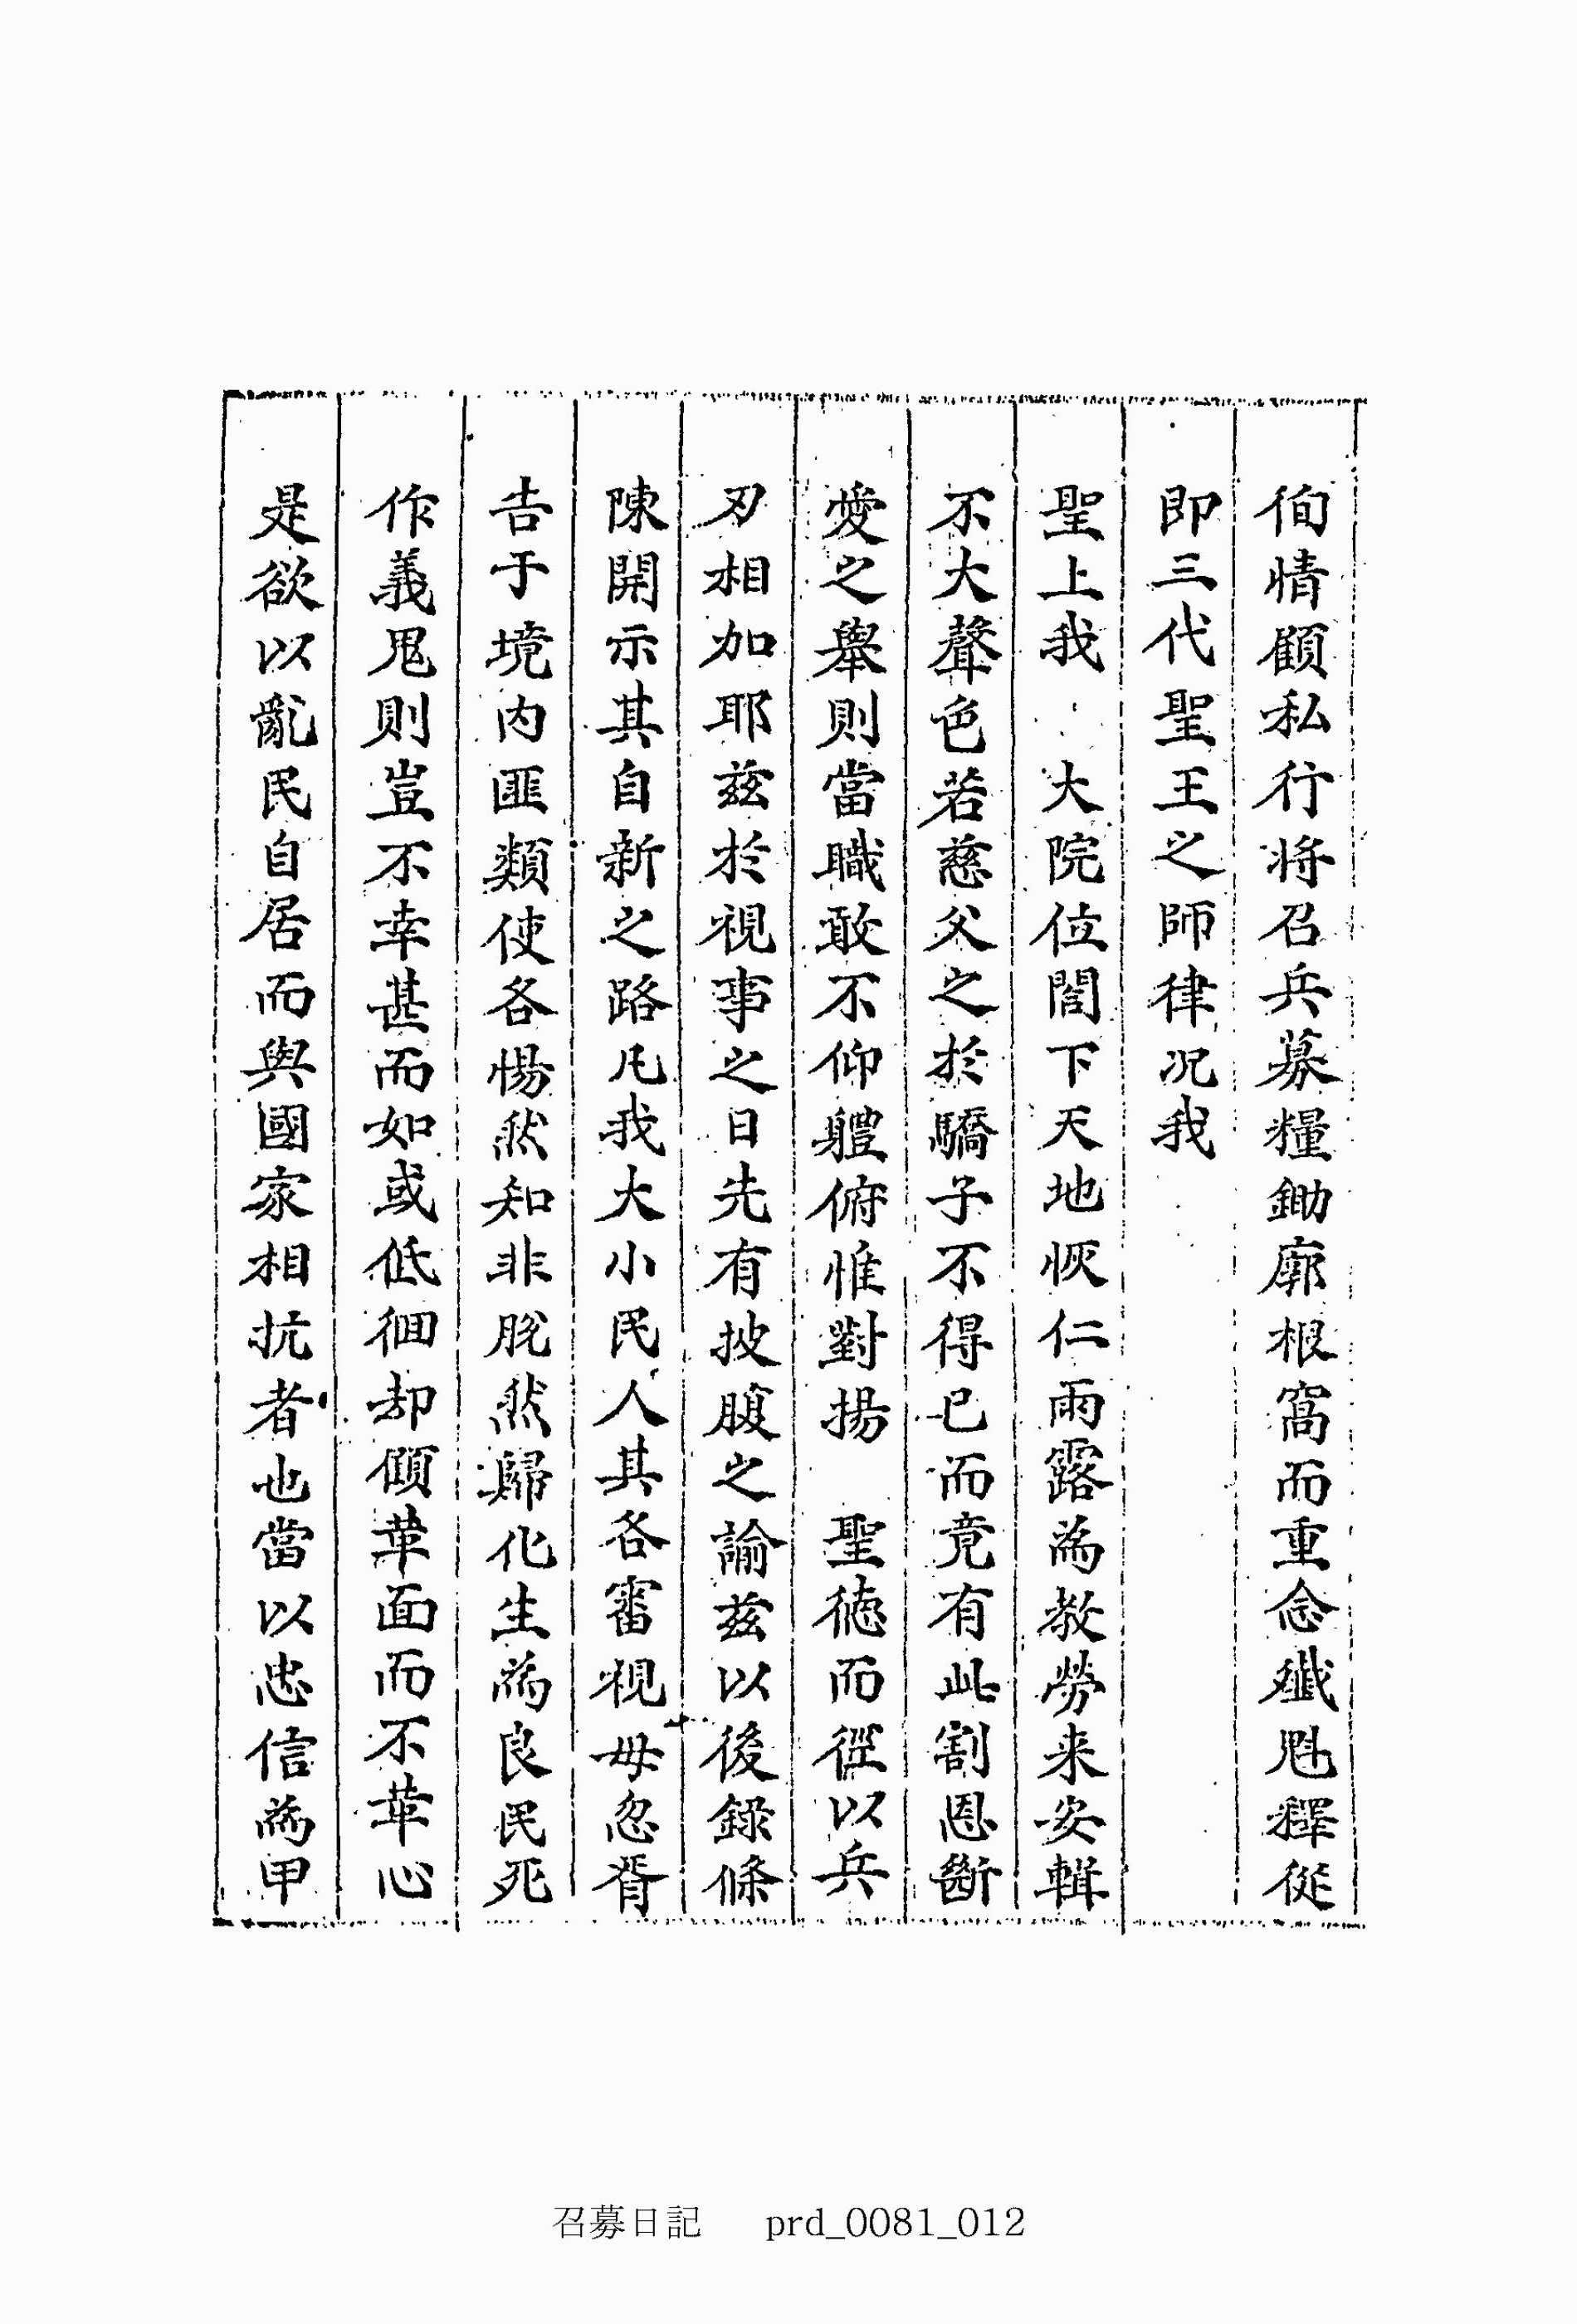 徇情顧私行將召兵募糧鋤廓根窩而重念殲魁釋從
即三代聖王之師律况我
聖上我 大院位閤下天地恢仁雨露為敎勞来安輯
不大聲色若慈父之於驕子不得已而竟有此割恩斷
愛之擧則當職敢不仰軆俯惟對揚 聖德而徑以兵
刃相加耶茲於視事之日先有披腹之諭茲以後錄條
陳開示其自新之路凡我大小民人其各審視毋忽胥
告于境內匪類使各惕然知非脫然歸化生為良民死
作義鬼則豈不幸甚而如或低徊却傾革面而不革心
是欲以亂民自居而與國家相抗者也當以忠信為甲
召募日記 prd_0081_012